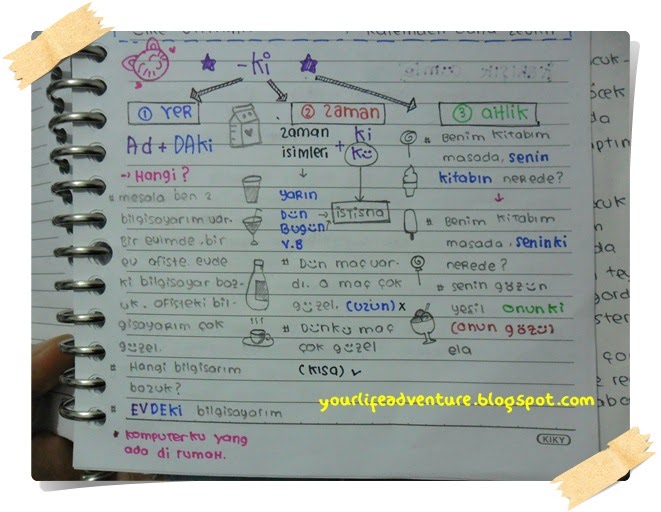 ★ -ki ★
① YER
Ad + DAKi
→ Hangi?
# mesala ben 2
bilgisayarım var.
Bir evimde, bir
ofiste. evde
ki bilgisayar boz-
uk. ofisteki bil-
gisayarım çok
güzel.
# Hangi bilgisarım
bozuk?
# EVDEKi bilgisayarım
* Komputerku yang
ada di rumah.
② Zaman
zaman
isimleri + ki
kü
↓
yarın
Dün → istisna
Bugün
V.B
# Dün maç var-
dı. o maç çok
güzel. (uzun) x
# Dünkü maç
çok güzel
(kısa) ✓
③ aitlik
# Benim kitabım
masada, senin
kitabın nerede?
↓
# Benim kitabım
masada, seninki
nerede?
# senin gözün
yesil onunki
(onun gözü)
ela
yourlifeadventure.blogspot.com
KIKY